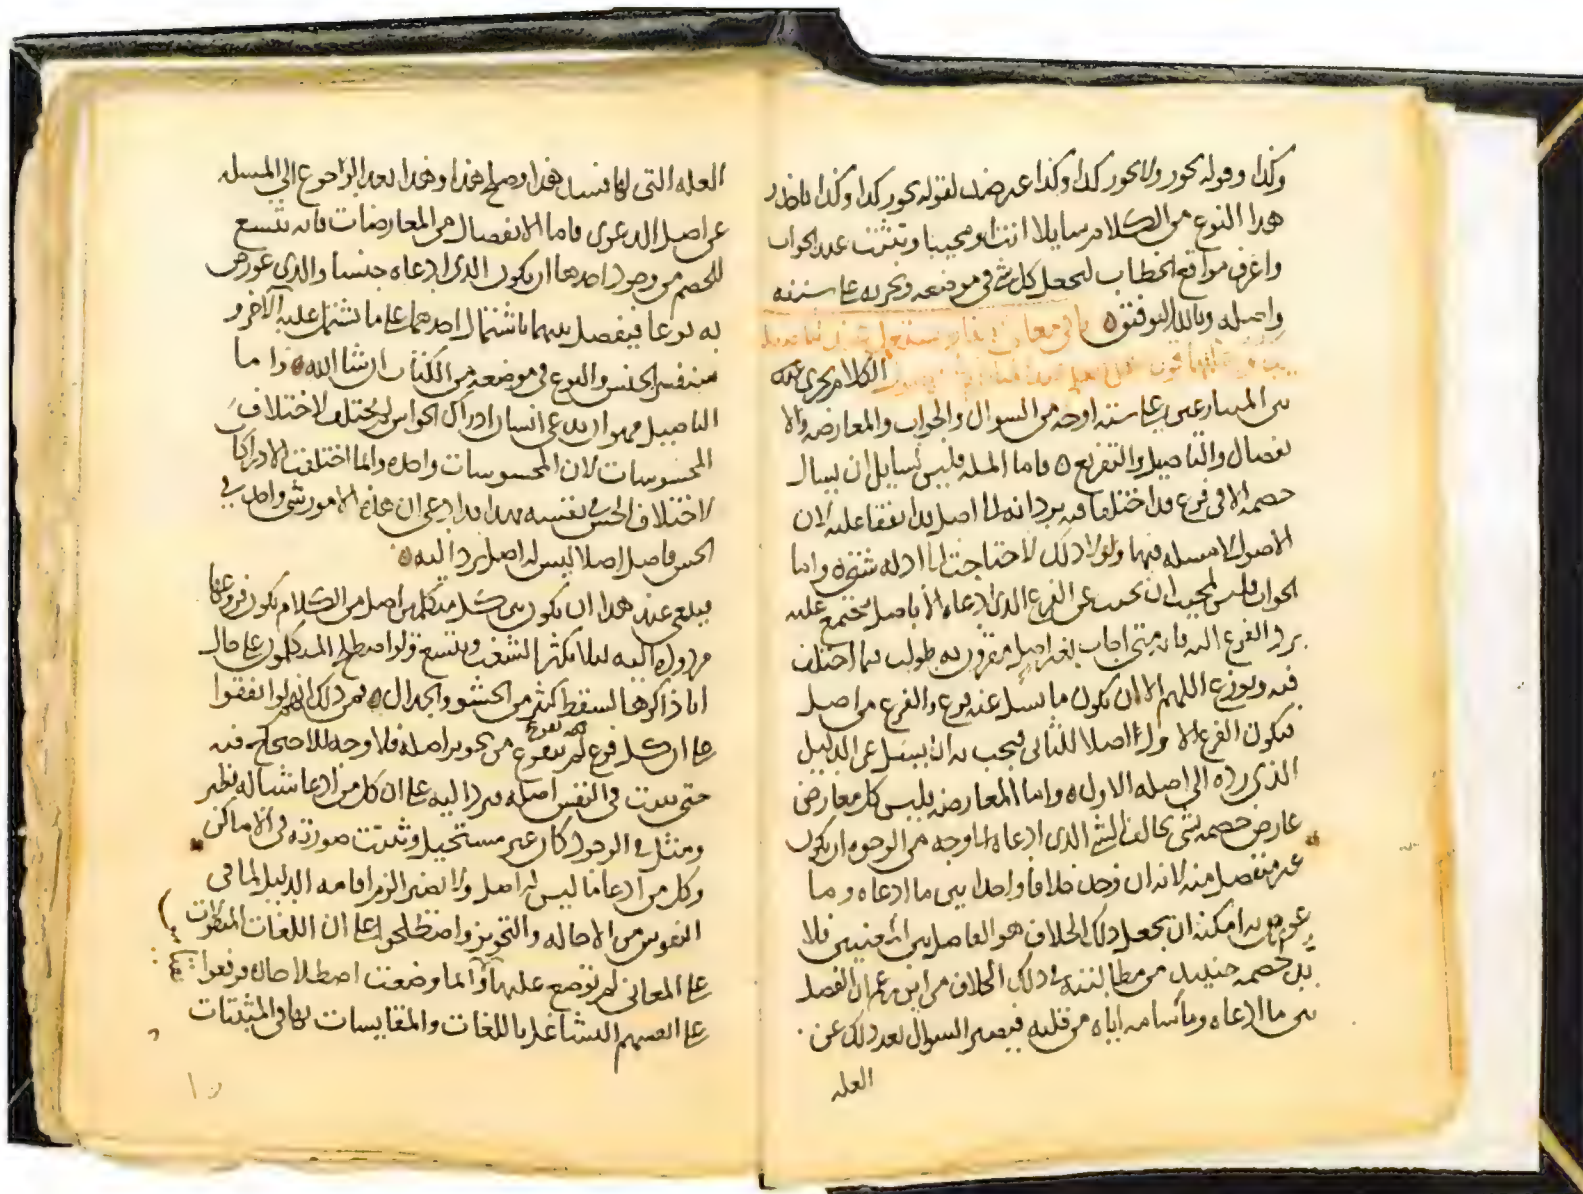 وكذا وقوله يجوز ولا يجوز كذا وكذا غير ضد لقوله يجوز كذا وكذا
هذا النوع من الكلام سايلا انت او مجيبا وتثبت عند الجواب
واعرف مواقع الخطاب لتجعل كل شي في موضعه وتجريه على سننه
واصله وبالله التوفيق
الكلام يجري
بين المتنازعين على ستة اوجه من السوال والجواب والمعارضه والا
نفصال والتاصيل والتفريع فاما المسله فليس لسايل ان يسال
خصمه الا في فرع قد اختلفا فيه يردانه الى اصل قد اتفقا عليه لان
الاصول لا مسله فيها ولولا ذلك لاحتاجت الى ادله شتى واما
الجواب فليس لمجيب ان يجيب عن الفرع الذي ادعاه الا باصل مجتمع عليه
يرد الفرع اليه فانه متى اجاب بغير اصل مقرون به طولب بما اختلف
فيه ونوزع اللهم الا ان يكون ما يسل عنه فرع والفرع من اصل
فيكون الفرع الاول اصلا للثاني فيجب به ان يسل عن الدليل
الذي رده الى اصله الاول واما المعارضه فليس كل معارض
عارض خصمه بشي يخالف الشي الذي ادعاه الى وجه من الوجوه ان يكون
غير منفصل منه لانه ان وجد خلافا واحدا بين ما ادعاه وما
عورض به امكنه ان يجعل ذلك الخلاف هو الفاصل بين فلا
بد لخصمه حينيذ من مطالبته في ذلك الخلاف من اين زعم ان الفصل
بين ما ادعاه وما سامه اياه من قلبه فيصير السوال بعد ذلك عن
العله
العله التي لها فسد هذا وصلح هذا وهذا بعد الراجوع الى المسله
عن اصل الدعوى فاما الانفصال من المعارضات فانه يتسع
للخصم من وجوه احدها ان يكون الذي ادعاه جنسا والذي عورض
به نوعا فينفصل بينهما باشتمال احدهما على ما يشتمل عليه الاخر و
سنفسر الجنس والنوع في موضعه من الكتاب ان شا الله واما
التاصيل فهو ان يدعي انسان ادراك الحواس لم يختلف لاختلاف
المحسوسات لان المحسوسات واحده وانما اختلفت الادراكا
لاختلاف الحس في نفسه فهذا قد ادعى ان هذه الامور شي واحد في
الحس فاصل اصلا ليس له اصل يرد اليه
فينبغي عند هذا ان يكون بين كل متكلمين اصل من الكلام يكون فروعها
مردوده اليه ليلا يكثر الشغب ويتسع ولو اصطلح المتكلمون على حال
انا ذاكرها لسقط كثير من الحشو والجدال فمن ذلك انهم لو اتفقوا
على ان كل فرع لم يتفرع من تجويز اصله فلا وجه للاحتجاج فيه
حتى يثبت في النفس اصله فيرد اليه على ان كل من ادعا شيا له نظير
ومثل في الوجود كان غير مستحيل وثبتت صورته في الاماكن
وكل من ادعا ما ليس له اصل ولا نضير الزم اقامه الدليل لما في
النفوس من الاحاله والتجويز واصطلحوا على ان اللغات
على المعاني لم توضع عليها وانما وضعت اصطلاحا
على التشاغل باللغات والمقايسات لها في المثبتات